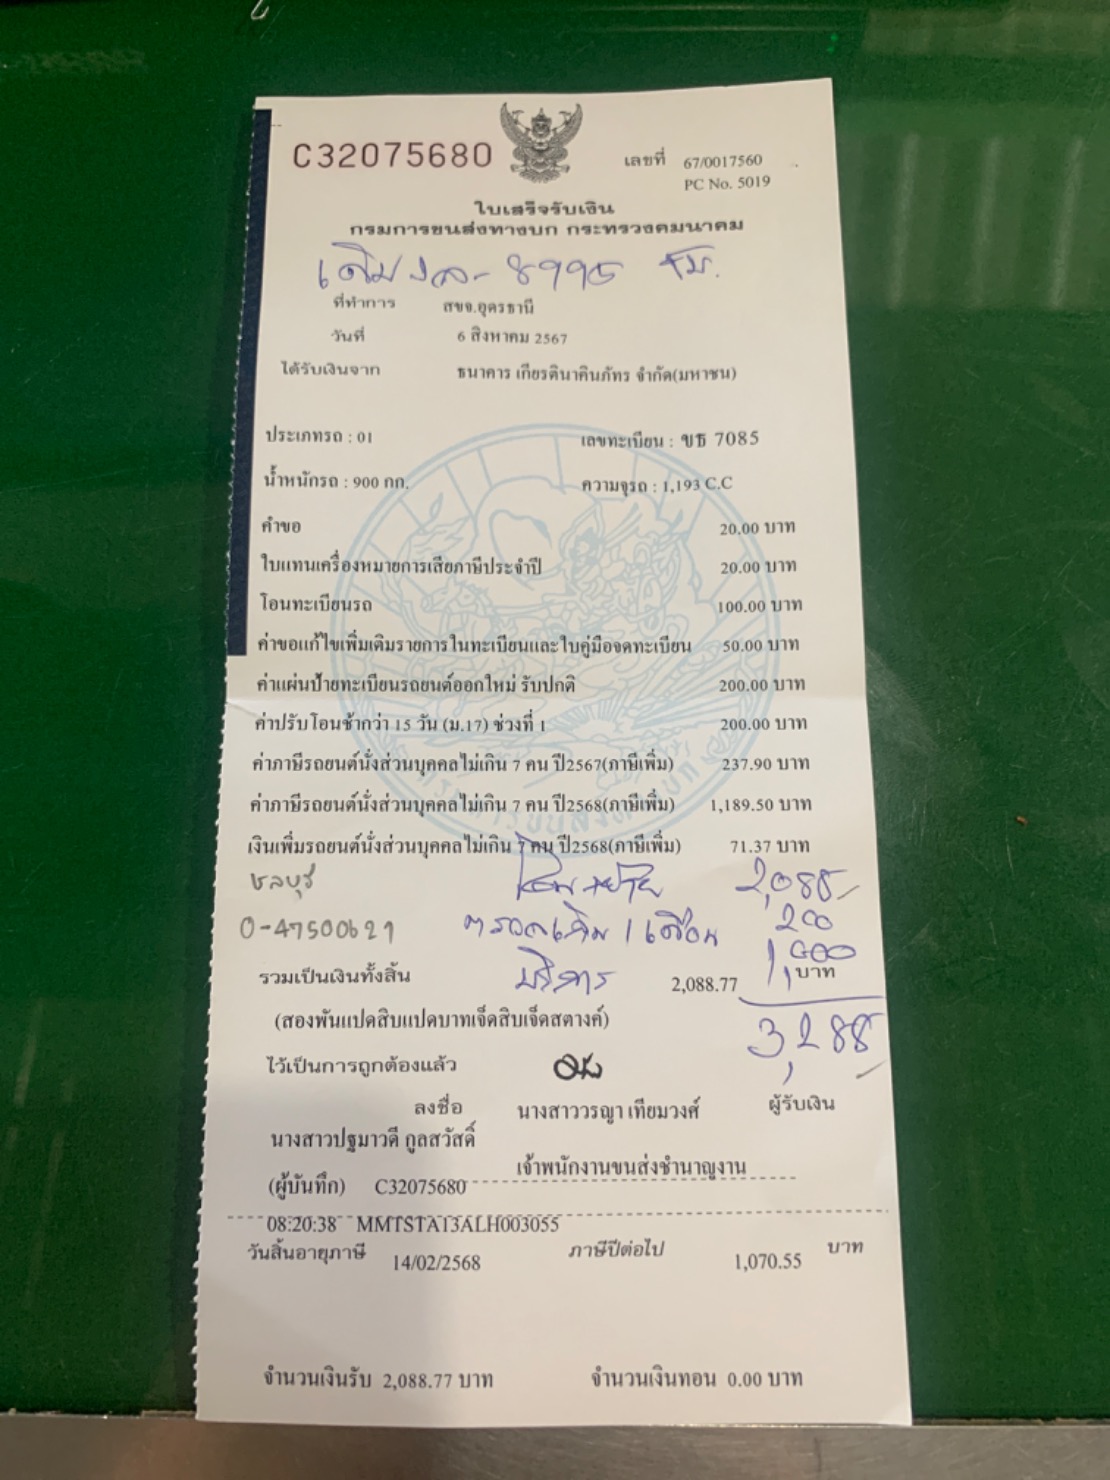 C32075680
เลขที่ 67/0017560
PC No. 5019
ใบเสร็จรับเงิน
กรมการขนส่งทางบก กระทรวงคมนาคม
เดิม งล-8995 ชม.
ที่ทำการ สขจ.อุดรธานี
วันที่ 6 สิงหาคม 2567
ได้รับเงินจาก ธนาคาร เกียรตินาคินภัทร จำกัด(มหาชน)
ประเภทรถ : 01 เลขทะเบียน : ขธ 7085
น้ำหนักรถ : 900 กก. ความจุรถ : 1,193 C.C
คำขอ 20.00 บาท
ใบแทนเครื่องหมายการเสียภาษีประจำปี 20.00 บาท
โอนทะเบียนรถ 100.00 บาท
ค่าขอแก้ไขเพิ่มเติมรายการในทะเบียนและใบคู่มือจดทะเบียน 50.00 บาท
ค่าแผ่นป้ายทะเบียนรถยนต์ออกใหม่ รับปกติ 200.00 บาท
ค่าปรับโอนช้ากว่า 15 วัน (ม.17) ช่วงที่ 1 200.00 บาท
ค่าภาษีรถยนต์นั่งส่วนบุคคลไม่เกิน 7 คน ปี2567(ภาษีเพิ่ม) 237.90 บาท
ค่าภาษีรถยนต์นั่งส่วนบุคคลไม่เกิน 7 คน ปี2568(ภาษีเพิ่ม) 1,189.50 บาท
เงินเพิ่มรถยนต์นั่งส่วนบุคคลไม่เกิน 7 คน ปี2568(ภาษีเพิ่ม) 71.37 บาท
ชลบุรี 2,088
0-47500621 ตรอเดิม 1 เดือน 200
บริการ 1,000
รวมเป็นเงินทั้งสิ้น 2,088.77 บาท
(สองพันแปดสิบแปดบาทเจ็ดสิบเจ็ดสตางค์) 3,288
ไว้เป็นการถูกต้องแล้ว
ลงชื่อ นางสาววรญา เทียมวงศ์ ผู้รับเงิน
นางสาวปฐมาวดี กูลสวัสดิ์
เจ้าพนักงานขนส่งชำนาญงาน
(ผู้บันทึก) C32075680
08:20:38 MMTSTA13ALH003055
วันสิ้นอายุภาษี 14/02/2568 ภาษีปีต่อไป 1,070.55 บาท
จำนวนเงินรับ 2,088.77 บาท จำนวนเงินทอน 0.00 บาท